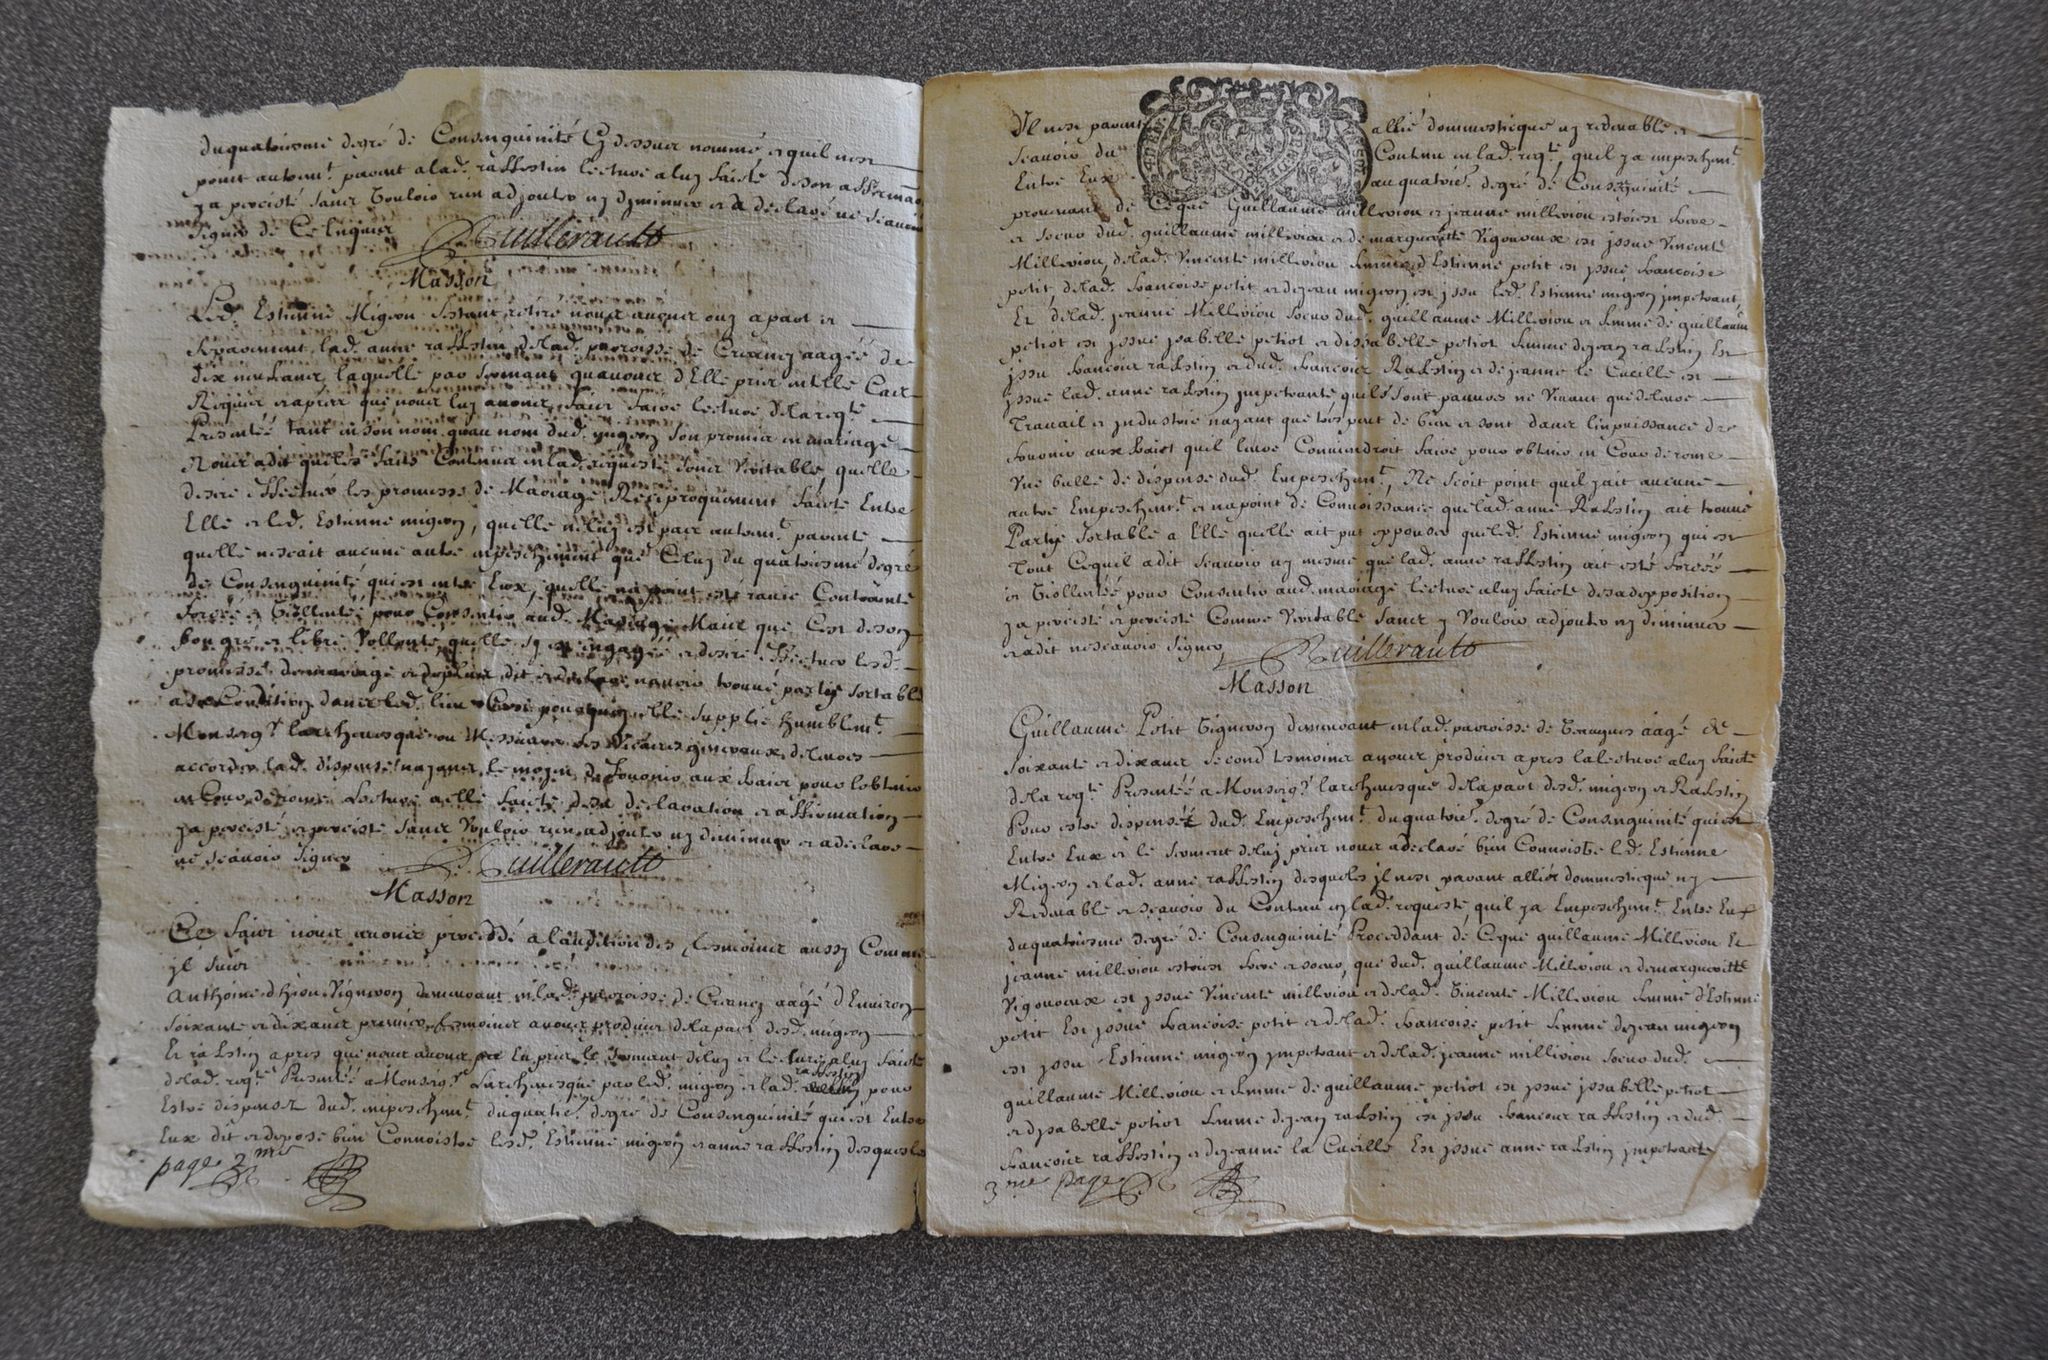 duquatriesme degré de Consenguinité Cy dessus nommé, et quil nest
point autrem.t parent a lad. raffestin lecture a luy faicte de son affirmaon
ya percisté sancs Voulois rien adjouter ny dyminuer et a declaré ne scavoir
signer de Ce Enquier
Guillerault
Masson
Led. Estienne Migeon sestant retiré nous avons ouy apart et
separement lad. anne raffestin delad. parroisse de Crezancy aagée de
dix neuf ans, laquelle par serment quavons d'Elle pris en telle Cas
Requis et apres que nous luy avons faict faire lecture de la reqte
Presentée tant en son nom quau nom dud. migeon son promis en mariage
Nous a dit que les faits Contenus en lad. requeste sont Veritable, quelle
desire effectuer les promesse de Mariage Reciproquement faicte Entre
Elle et led. Estienne migeon, quelle ne luy est pas autrem.t parente
quelle ne scait aucune autre empeschement que Celuy du quatriesme degré
de Consenguinité qui est entre Eux, quelle na point esté ravie Contrainte
forcée et Viollentée pour Consentir aud. Mariage Mais que Cest de son
bon gré et libre Vollonté quelle sy est engagée et desire effectuer lesd.
promesse de mariage et deplus dit et declare navoir trouvé partie sortable
a sa Condition dans led. lieu Cest pourquoy elle supplie humblem.t
Monseig.r larchevesque ou Messieurs ses Vicaires generaux de leurs
accorder lad. dispense nayant le moyen de fournir aux frais pour lobtenir
en Cour de rome lecture a elle faicte de sa declaration et affirmation
ya percisté et perciste sancs Vouloir rien adjouter ny diminuer et a declaré
ne scavoir signer
Guillerault
Masson
Ce faict nous avons proceddé a laudition des tesmoins aussy Comme
jl suict
Anthoine Vigneron demeurant en lad. parroisse de Crezancy aagé d'Environ
soixante et dix ans premier tesmoins avons produict delapart desd. migeon
Et raffestin apres que nous avons pris le serment de luy et lecture a luy faicte
delad. reqte Presentée a Monseig.r Larchevesque par led. migeon et lad. raffestin pour
Estre dispensez dud. empeschem.t duquatrie. degré de Consenguinité qui est Entre
Eux dit et depose bien Connoistre lesd. Estienne migeon et anne raffestin desquels
page 2me
Jl nest parent allié dommesticque ny redevable et
scavoir du Contenu en lad. reqte, quil ya empeschem.t
Entre Eux au quatrie. degré de Consenguinité
provenant de Ceque Guillaume millerion et jeanne millerion estoient frere
et soeur dud. guillaume millerion et de margueritte Vigoureux est jssue Vincente
Millerion, delad. Vincente millerion femme d'Estienne petit est jssue francoise
petit, delad. francoise petit et de jean migeon est jssu led. Estienne migeon jmpetrant,
Et delad. jeanne Millerion soeur dud. guillaume Millerion et femme de guillaume
petiot est jssue jsabelle petiot et de jsabelle petiot femme de jean raffestin Est
jssu francois raffestin et dud. francois Raffestin et de jeanne la Cueille est
jssue lad. anne raffestin jmpetrante quils sont pauvres ne Vivant que de leur
Travail et jndustrie nayant que tres peut de bien et sont dans limpuissance de
fournir aux frais quil leurs Conviendroit faire pour obtenir en Cour de rome
Vne bulle de dispense dud. Empeschem.t, Ne scoit point quil y ait aucune
autre Empeschem.t et na point de Connoissance que lad. anne Raffestin ait trouvé
Partye sortable a Elle quelle ait put espouser que led. Estienne migeon qui est
Tout Cequil a dit scavoir ny mesme que lad. anne raffestin ait esté forcée
et Viollentée pour Consentir aud. mariage lecture a luy faicte desa depposition
ya percisté et perciste Comme Veritable sancs y Vouloir adjouter ny diminuer
et a dit ne scavoir signer
Guillerault
Masson
Guillaume Petit Vigneron demeurant en lad. parroisse de Veaugues aagé de
soixante et dix ans second tesmoins avons produict apres la lecture a luy faicte
dela reqte Presentée a Monseig.r larchevesque delapart desd. migeon et Raffestin
Pour estre dispensez dud. Empeschem.t duquatrie. degré de Consenguinité qui est
Entre Eux et le serment deluy pris nous a declaré bien Connoistre led. Estienne
Migeon et lad. anne raffestin desquels jl nest parant alliér dommesticque ny
Redevable et scavoir du Contenu en lad. requeste, quil ya Empeschem.t Entre Eux
duquatriesme degré de Consenguinité Proceddant de Ceque guillaume Millerion Et
jeanne millerion estoient frere et soeur, que dud. guillaume Millerion et de margueritte
Vigoureux est jssue Vincente millerion et delad. Vincente Millerion femme d'Estienne
petit Est jssue francoise petit et delad. francoise petit femme de jean migeon
est jssu Estienne migeon jmpetrant et delad. jeanne millerion soeur dud.
guillaume Millerion et femme de guillaume petiot est jssue jssabelle petiot
et d'jsabelle petiot femme de jean raffestin est jssu francois raffestin et dud.
francois raffestin et de jeanne la Cueille Est jssue anne raffestin jmpetrante
3me page